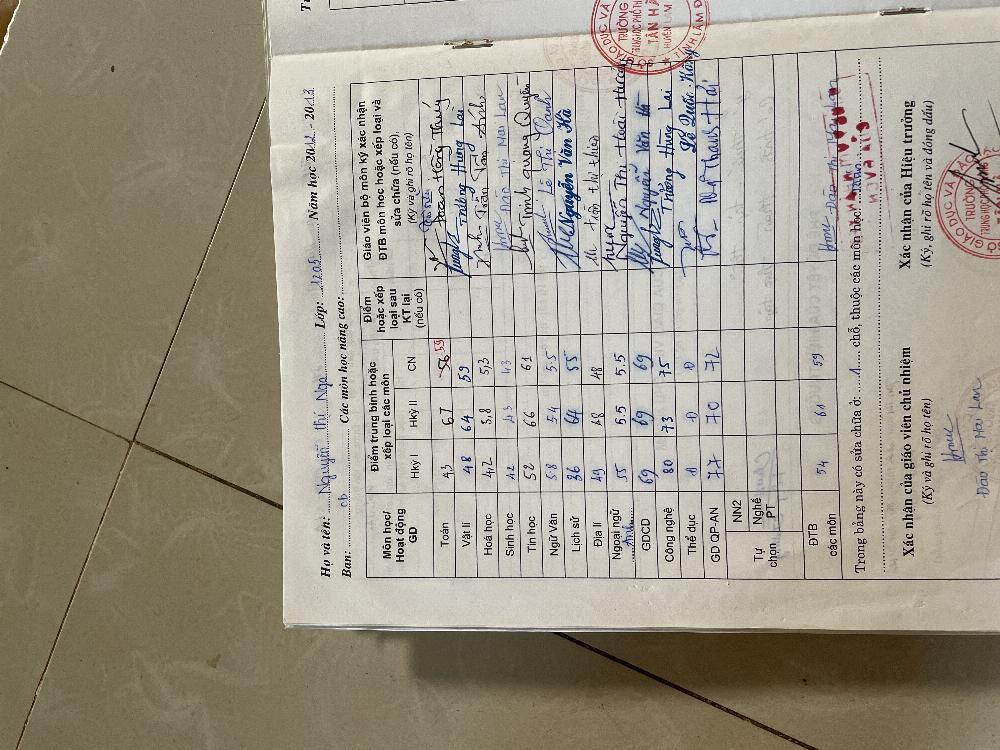 Họ và tên: Nguyễn thị Nga Lớp: 12C5 Năm học 2012 - 2013
Ban: cb Các môn học nâng cao:
Môn học/ Hoạt động GD
Điểm trung bình hoặc xếp loại các môn
Điểm hoặc xếp loại sau KT lại (nếu có)
Giáo viên bộ môn ký xác nhận ĐTB môn học hoặc xếp loại và sửa chữa (nếu có),
(Ký và ghi rõ họ tên)
Hkỳ I Hkỳ II CN
Toán 43 67 56 59
Vật lí 48 64 59 Trương Hùng Lai
Hoá học 4,2 5,8 5,3
Sinh học 42 43 43 Đào Thị Mai Lan
Tin học 52 66 61 Trịnh Quang Quyền
Ngữ Văn 5.8 5.4 5.5 Lê Thị Oanh
Lịch sử 36 64 55 Nguyễn Văn Hà
Địa lí 49 48 48
Ngoại ngữ Anh 55 5.5 5.5 Nguyễn Thị Hoài Hương
GDCD 69 69 69 Nguyễn Văn Hà
Công nghệ 80 73 75 Trương Hùng Lai
Thể dục Đ Đ Đ Lê Quốc Hồng
GD QP-AN 77 70 72
Tự chọn
NN2
Nghề PT
ĐTB các môn 54 61 59 Đào Thị Mai Lan
Trong bảng này có sửa chữa ở: 1 chỗ, thuộc các môn học: Toán
Xác nhận của giáo viên chủ nhiệm
(Ký và ghi rõ họ tên)
Đào Thị Mai Lan
Xác nhận của Hiệu trưởng
(Ký, ghi rõ họ tên và đóng dấu)
TRƯỜNG
TRUNG HỌC PHỔ TH
TÂN HÀ
HUYỆN LÂM
TỈNH LÂM Đ
GIÁO DỤC VÀ
GIÁO DỤC VÀ ĐÀO
TRƯỜNG